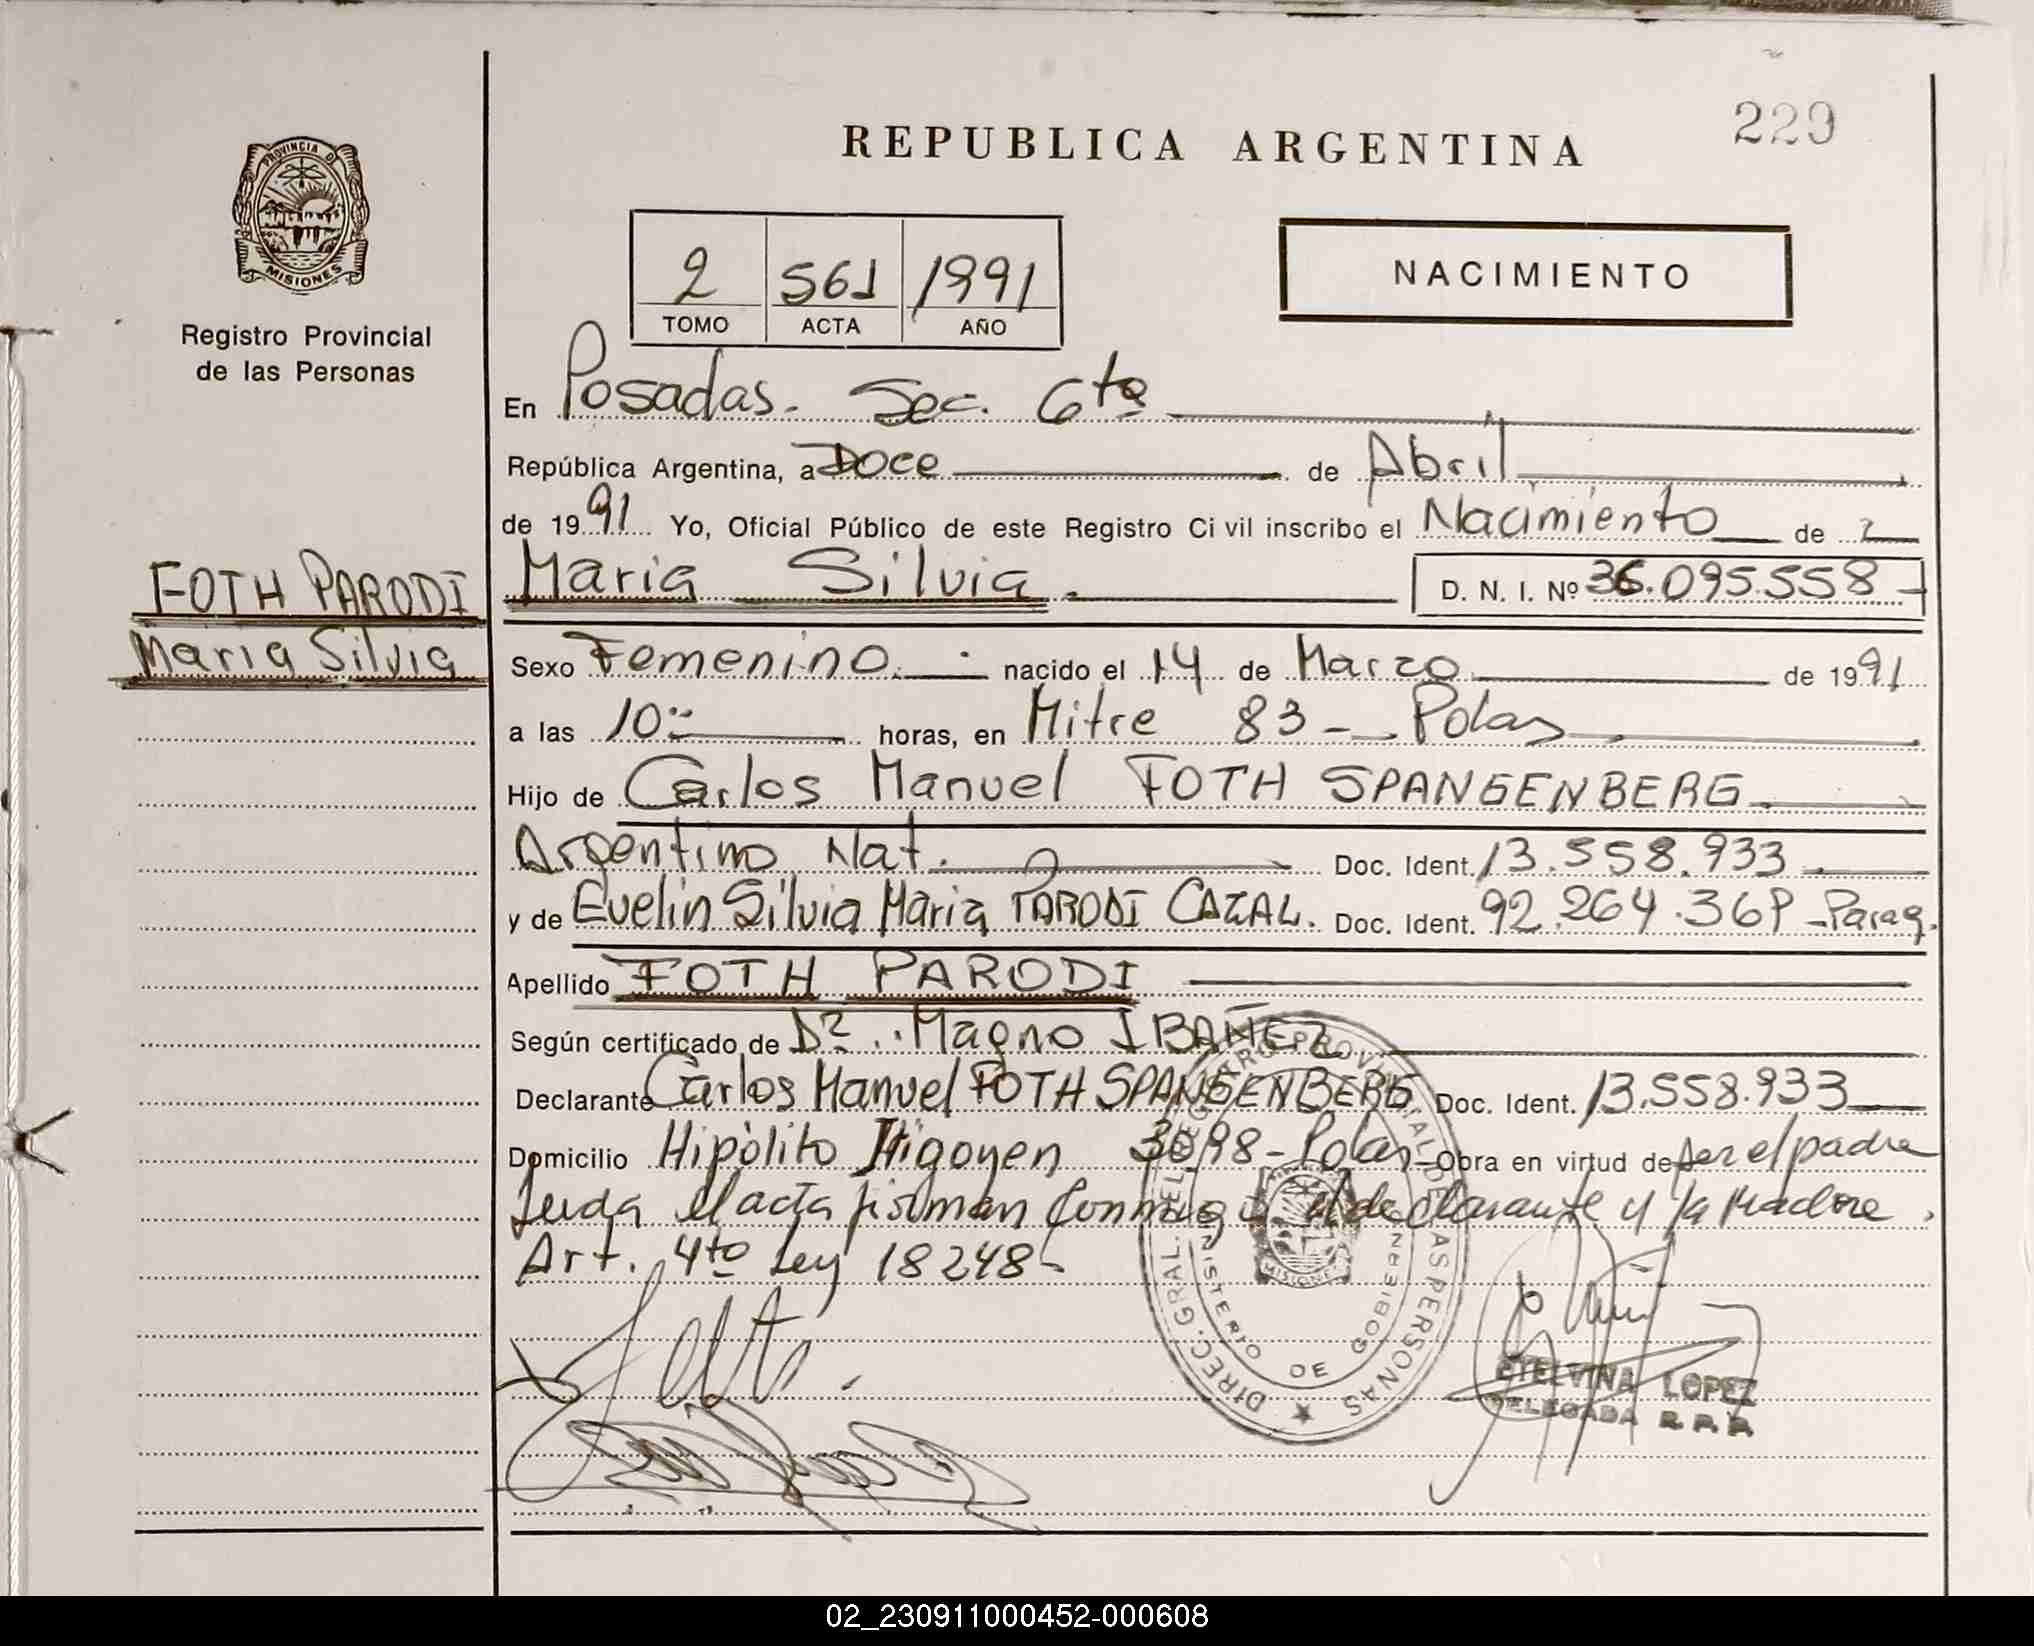 229
REPUBLICA ARGENTINA
PROVINCIA DE
MISIONES
Registro Provincial
de las Personas
2 561 1991
TOMO ACTA AÑO
NACIMIENTO
En Posadas. Sec. 6ta
República Argentina, a Doce de Abril
de 1991 Yo, Oficial Público de este Registro Ci vil inscribo el Nacimiento de
FOTH PARODI
Maria Silvia
Maria Silvia. D. N. I. Nº 36.095.558
Sexo Femenino. nacido el 14 de Marzo de 1991
a las 10 horas, en Mitre 83 - Pdas
Hijo de Carlos Manuel FOTH SPANGENBERG
Argentino Nat. Doc. Ident. 13.558.933
y de Evelin Silvia Maria PARODI CAZAL. Doc. Ident. 92.264.369 - Parag.
Apellido FOTH PARODI
Según certificado de Dr. Magno IBAÑEZ
Declarante Carlos Manuel FOTH SPANGENBERG Doc. Ident. 13.558.933
Domicilio Hipólito Irigoyen 3098 - Pdas - Obra en virtud de ser el padre
Leida el acta firman conmigo el declarante y la Madre.
Art. 4to Ley 18248
DIREC. GRAL. DEL REGISTRO PROVINCIAL DE LAS PERSONAS
MINISTERIO DE GOBIERNO
MISIONES
ETELVINA LOPEZ
DELEGADA R.P.P.
02_230911000452-000608